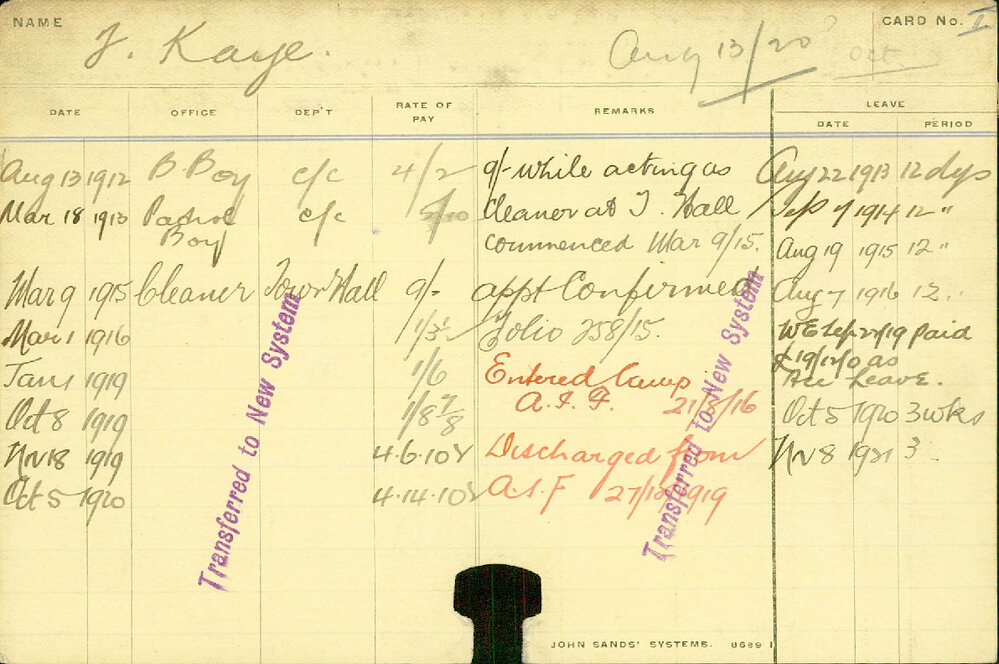 NAME J. Kaye. Aug 13/20 Oct. CARD No. I
DATE OFFICE DEP'T RATE OF PAY REMARKS LEAVE
DATE PERIOD
Aug 13 1912 B Boy c/c 4/2 9/- while acting as Aug 22 1913 12 dys
Mar 18 1913 Patrol c/c cleaner at T. Hall Sep 7 1914 12 "
Boy commenced Mar 9/15. Aug 19 1915 12 "
Mar 9 1915 Cleaner Town Hall 9/- appt Confirmed Aug 7 1916 12 "
Mar 1 1916 Folio 258/15. WE Sep 27/19 paid
£19/12/0 as
Jan 1 1919 1/6 Entered Camp Acc Leave.
Oct 8 1919 1/8 7/8 A.I.F. 21/8/16 Oct 5 1920 3 wks
Nov 18 1919 4.6.10½ Discharged from Nov 8 1921 3
Oct 5 1920 4.14.10½ A.I.F 27/12/1919
Transferred to New System
Transferred to New System
JOHN SANDS' SYSTEMS. 8689